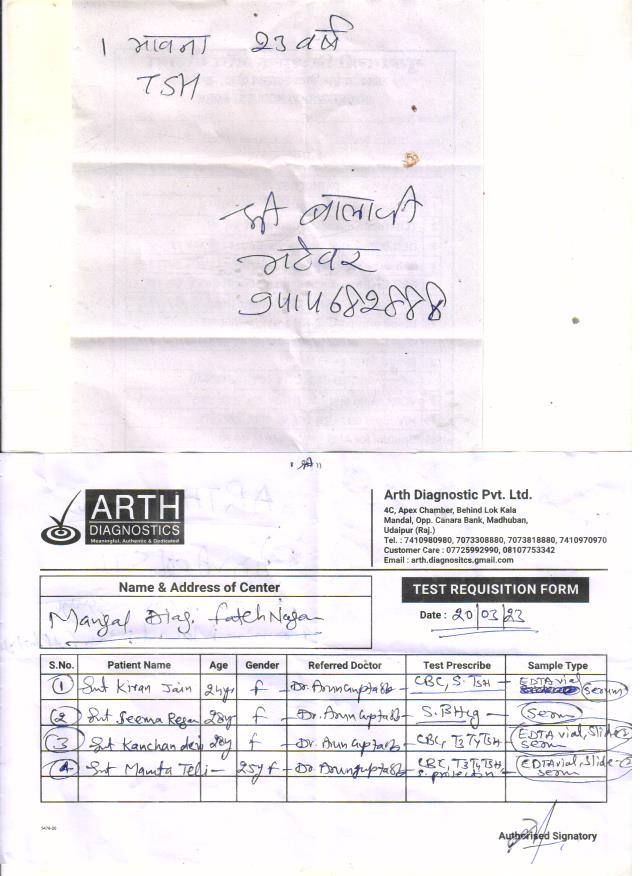 1 भावना 23 वर्ष
TSH
श्री बालाजी
भटेवर
9414682888
॥ श्री ॥
ARTH
DIAGNOSTICS
Meaningful, Authentic & Dedicated
Arth Diagnostic Pvt. Ltd.
4C, Apex Chamber, Behind Lok Kala
Mandal, Opp. Canara Bank, Madhuban,
Udaipur (Raj.)
Tel. : 7410980980, 7073308880, 7073818880, 7410970970
Customer Care : 07725992990, 08107753342
Email : arth.diagnositcs.gmail.com
Name & Address of Center
TEST REQUISITION FORM
Mangal Diag. Fateh Nagar
Date : 20/03/23
S.No. Patient Name Age Gender Referred Doctor Test Prescribe Sample Type
1 Smt Kiran Jain 24yr f Dr. Arun Gupta CBC, S. TSH EDTA vial serum
2 Smt Seema 28y f Dr. Arun Gupta S. BHcg Serum
3 Smt Kanchan devi 28y f Dr. Arun Gupta CBC, T3 T4 TSH EDTA vial, Slide-2 serum
4 Smt Mamta Teli 25y f Dr. Arun Gupta CBC, T3 T4 TSH S. prolactin EDTA vial, Slide-2 serum
5474-00
Authorised Signatory